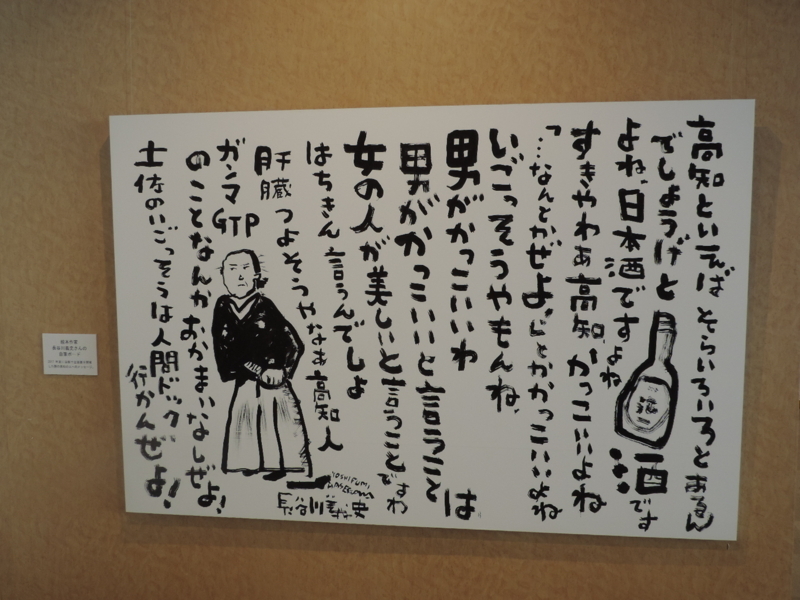 高知といえばそらいろいろとあるん
でしょうけど
酒です
よね、日本酒ですよね
すきやわぁ高知、かっこいいよね
「…なんとかぜよ」とかかっこいいよね
いごっそうやもんね、
男がかっこいいわ
男がかっこいいと言うことは
女の人が美しいと言うことですわ
はちきん言うんでしょ
肝臓つよそうやなあ高知人
ガンマGTP
のことなんかおかまいなしぜよ!
土佐のいごっそうは人間ドック
行かんぜよ!
酒
YOSHIFUMI
HASEGAWA
長谷川義史